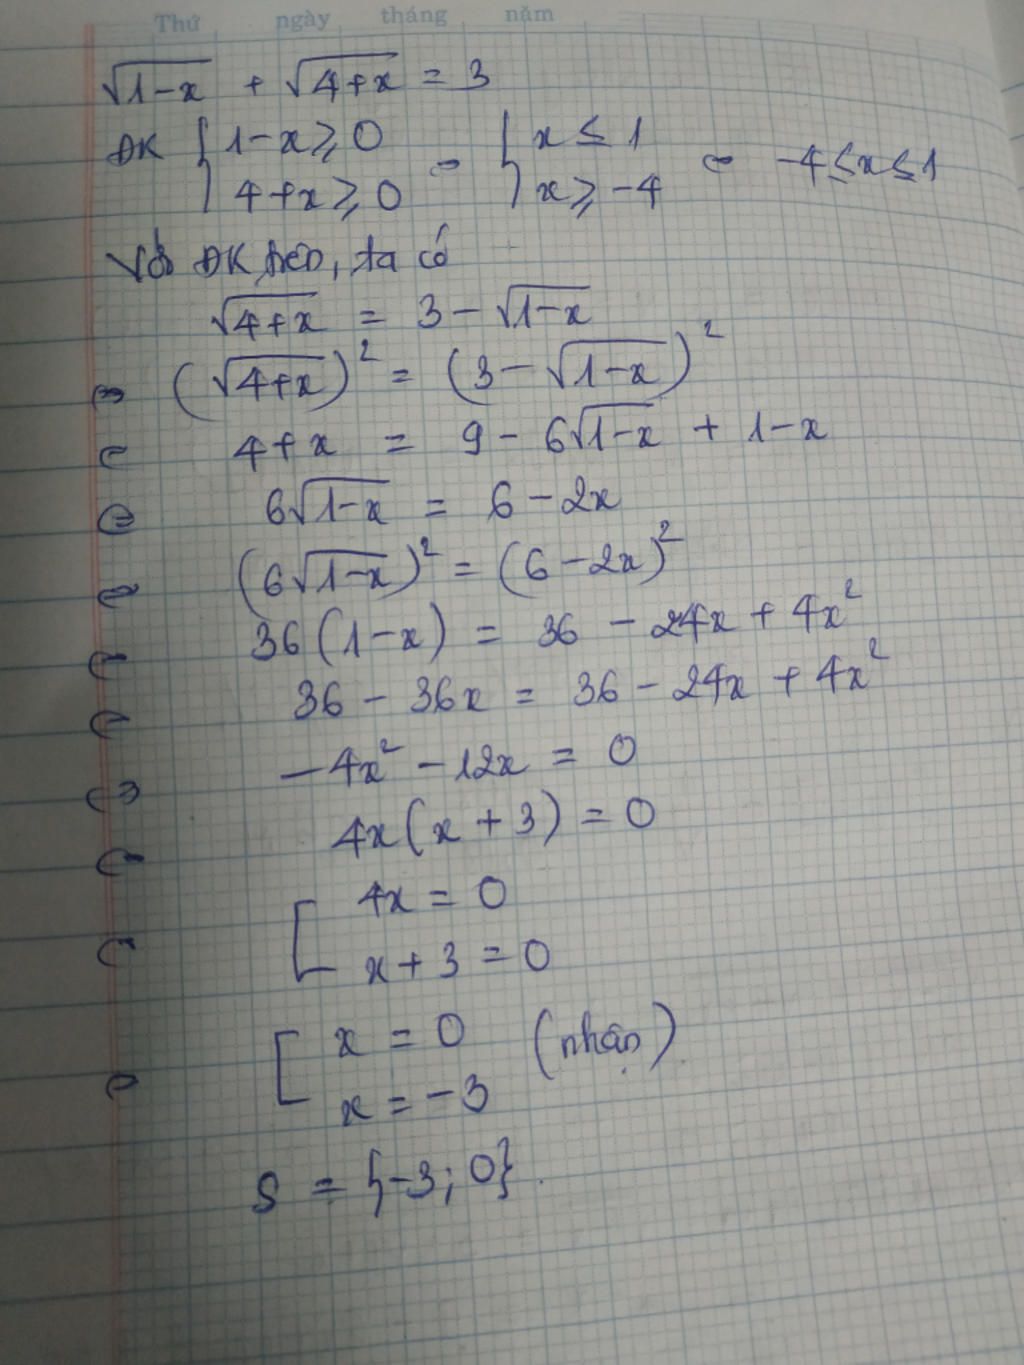 Thứ ngày tháng năm
√(1-x) + √(4+x) = 3
ĐK { 1-x ⩾ 0 ⇔ { x ≤ 1 ⇔ -4 ≤ x ≤ 1
4+x ⩾ 0 x ⩾ -4
Với ĐK trên, ta có
√(4+x) = 3 - √(1-x)
⇔ (√(4+x))² = (3 - √(1-x))²
⇔ 4+x = 9 - 6√(1-x) + 1-x
⇔ 6√(1-x) = 6 - 2x
⇔ (6√(1-x))² = (6 - 2x)²
⇔ 36(1-x) = 36 - 24x + 4x²
⇔ 36 - 36x = 36 - 24x + 4x²
⇔ -4x² - 12x = 0
⇔ 4x(x+3) = 0
⇔ [ 4x = 0
x+3 = 0
⇔ [ x = 0 (nhận)
x = -3
S = {-3; 0}.